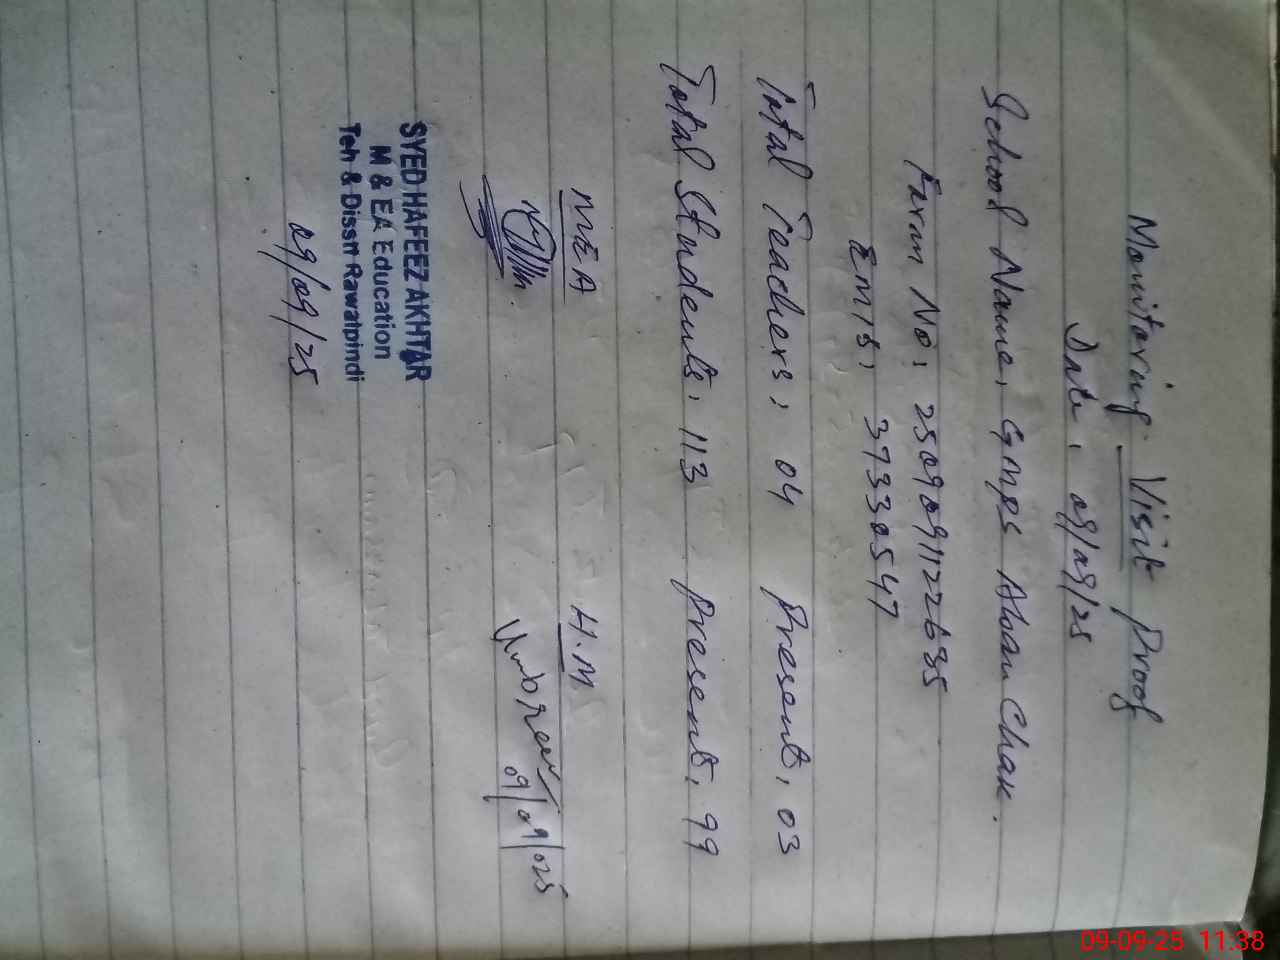 Monitoring Visit Proof
Date: 09/09/25
School Name: GMPS Awan Chak.
Faram No: 25090911222635
EMIS: 37330547
Total Teachers: 04 Present: 03
Total Students: 113 Present: 99
MEA H.M
09/09/025
SYED HAFEEZ AKHTAR
M & EA Education
Teh & Disstt Rawalpindi
09/09/25
09-09-25 11:38